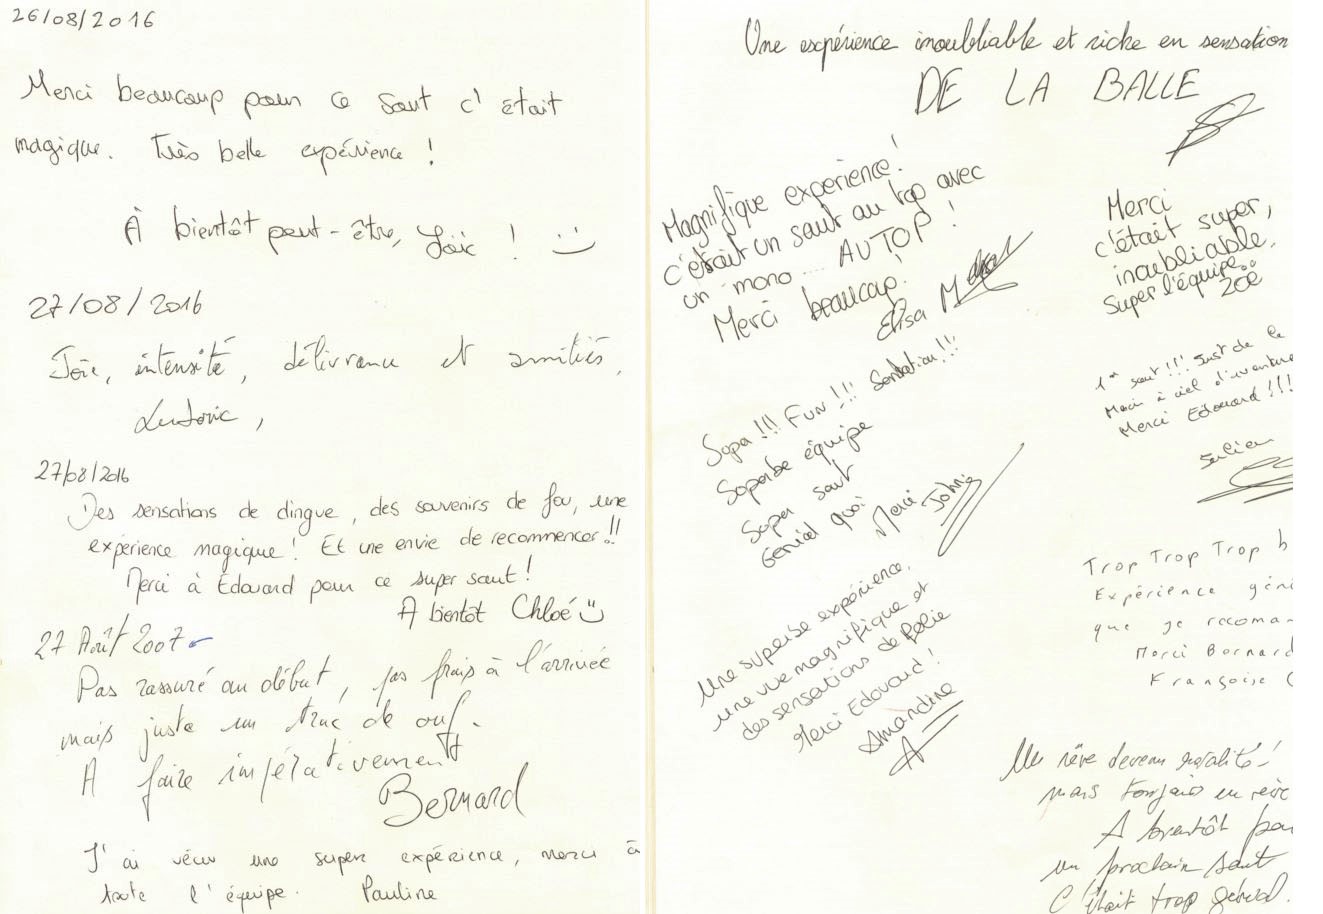 26/08/2016
Merci beaucoup pour ce saut c'était
magique. Très belle expérience !
À bientôt peut-être, Loïc ! :)
27/08/2016
Joie, intensité, délivrance et amitiés,
Ludovic,
27/08/2016
Des sensations de dingue, des souvenirs de fou, une
expérience magique ! Et une envie de recommencer !!
Merci à Edouard pour ce super saut !
A bientôt Chloé
27 Août 2007
Pas rassuré au début, pas frais à l'arrivée
mais juste un truc de ouf.
A faire impérativement
Bernard
J'ai vécu une super expérience, merci à
toute l'équipe. Pauline
Une expérience inoubliable et riche en sensation
DE LA BALLE
Magnifique expérience !
c'était un saut au top avec
un mono... AU TOP !
Merci beaucoup !
Elisa
Merci
c'était super,
inoubliable.
Super l'équipe..
Zoé
Sopa !!! Fun !!! Sensation !!!
Soperbe équipe
Soper saut
Génial quoi
Merci John
1er saut !!! Just de la
Merci à ciel d'aventure
Merci Edouard !!!
Julien
Une superbe expérience,
une vue magnifique et
des sensations de folie
Merci Edouard !
Amandine
A
Trop Trop Trop b
Expérience géni
que je recoman
Merci Bernard
Françoise
Un rêve devenu réalité !
mais toujours un rêve
A bientôt pou
un prochain saut
C'était trop génial.